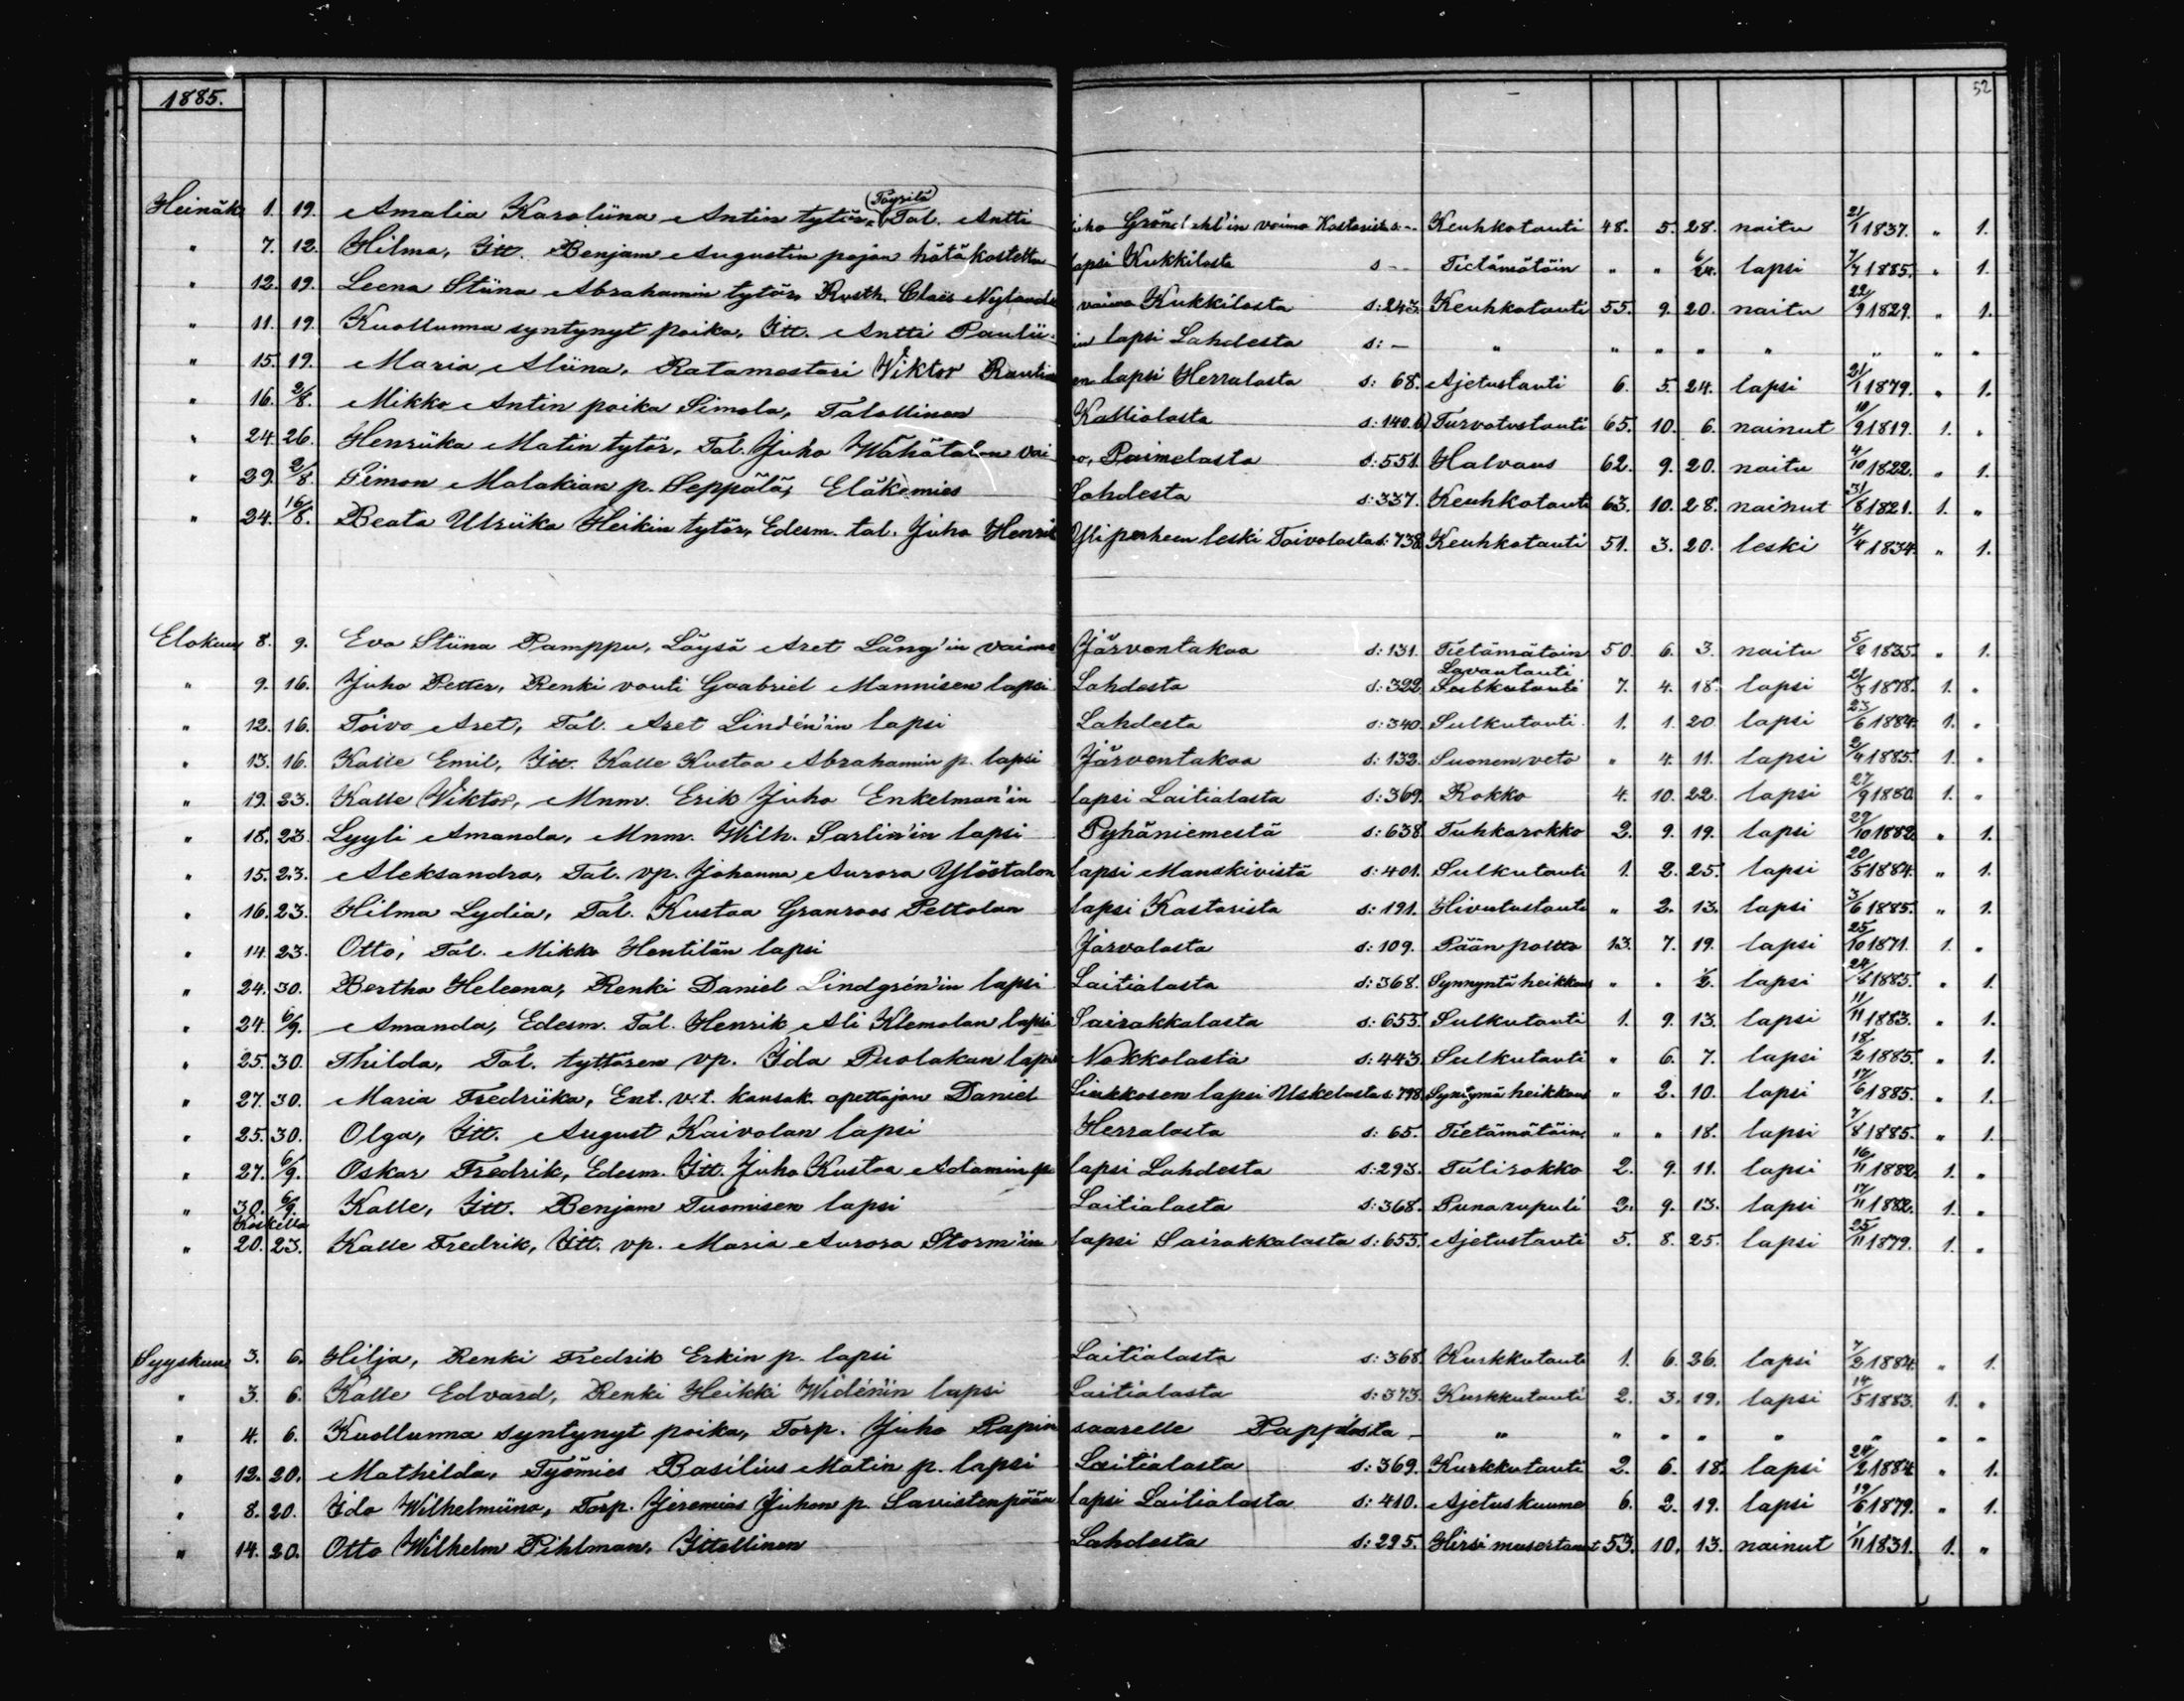 1885. 52
Heinäk. 1. 19. Amalia Karoliina Antin tytär, (Töyrilä) Tal. Antti Juho Gröndahl'in vaimo Kastarista s: - Keuhkotauti 48. 5. 28. naitu 21/1 1837. " 1.
" 7. 12. Hilma, Itt. Benjam Augustin pojan hätäkastettu lapsi Kukkilasta s - - Tietämätöin " " 6/24. lapsi 7/7 1885. " 1.
" 12. 19. Leena Stiina Abrahamin tytär, Rusth. Claës Nylandin vaimo Kukkilasta s: 243. Keuhkotauti 55. 9. 20. naitu 22/9 1829. " 1.
" 11. 19. Kuollunna syntynyt poika, Itt. Antti Pauliin lapsi Lahdesta s: - " " " " " " " "
" 15. 19. Maria Aliina, Ratamestari Wiktor Rautian lapsi Herralasta s: 68. Ajetustauti 6. 5. 24. lapsi 21/1 1879. " 1.
" 16. 2/8. Mikko Antin poika Simola, Talollinen Kalliolasta s: 140.b) Turvotustauti 65. 10. 6. nainut 10/9 1819. 1. "
" 24. 26. Henriika Matin tytär, Tal. Juho Wähätalon vaimo, Paimelasta s: 551. Halvaus 62. 9. 20. naitu 4/10 1822. " 1.
" 29. 2/8. Simon Malakian p. Seppälä, Eläkemies Lahdesta s: 337. Keuhkotauti 63. 10. 28. nainut 31/8 1821. 1. "
" 24. 16/8. Beata Ulriika Heikin tytär, Edesm. tal. Juho Henrik Yliperheen leski Toivolasta s: 738. Keuhkotauti 51. 3. 20. leski 4/4 1834. " 1.
Elokuu 8. 9. Eva Stiina Pamppu, Löysä Aret Lång'in vaimo Järventakaa s: 131. Tietämätöin 50. 6. 3. naitu 5/2 1835. " 1.
" 9. 16. Juho Petter, Renki vouti Gaabriel Mannisen lapsi Lahdesta s: 322. Lavantauti Sulkutauti 7. 4. 18. lapsi 21/3 1878. 1. "
" 12. 16. Toivo Aret, Tal. Aret Lindén'in lapsi Lahdesta s: 340. Sulkutauti 1. 1. 20 lapsi 23/6 1884. 1. "
" 13. 16. Kalle Emil, Itt. Kalle Kustaa Abrahamin p. lapsi Järventakaa s: 132. Suonen veto " 4. 11. lapsi 2/4 1885. 1. "
" 19. 23. Kalle Wiktor, Mnm. Erik Juho Enkelman'in lapsi Laitialasta s: 369. Rokko 4. 10. 22. lapsi 27/9 1880. 1. "
" 18. 23. Lyyli Amanda, Mnm. Wilh. Sarlin'in lapsi Pyhäniemestä s: 638 Tuhkarokko 2. 9. 19. lapsi 29/10 1882. " 1.
" 15. 23. Aleksandra, Tal. vp. Johanna Aurora Ylöstalon lapsi Manskivistä s: 401. Sulkutauti 1. 2. 25. lapsi 20/5 1884. " 1.
" 16. 23. Hilma Lydia, Tal. Kustaa Granroos Peltolan lapsi Kastarista s: 191. Hivutustauti " 2. 13. lapsi 3/6 1885. " 1.
" 14. 23. Otto, Tal. Mikko Hentilän lapsi Järvalasta s: 109. Pään poltto 13. 7. 19. lapsi 25/10 1871. 1. "
" 24. 30. Bertha Heleena, Renki Daniel Lindgrén'in lapsi Laitialasta s: 368. Synnyntä heikkous " " 1/2. lapsi 24/8 1885. " 1.
" 24. 6/9. Amanda, Edesm. Tal. Henrik Ali Klemolan lapsi Sairakkalasta s: 655. Sulkutauti 1. 9. 13. lapsi 11/11 1883. " 1.
" 25. 30. Thilda, Tal. tyttären vp. Ida Puolakan lapsi Nokkolasta s: 443 Sulkutauti " 6. 7. lapsi 18/2 1885. " 1.
" 27. 30. Maria Fredriika, Ent. v.t. kansak. opettajan Daniel Liukkosen lapsi Uskelasta s: 798. Syntymä heikkous " 2. 10. lapsi 17/6 1885. " 1.
" 25. 30. Olga, Itt. August Kaivolan lapsi Herralasta s: 65. Tietämätöin " " 18. lapsi 7/8 1885. " 1.
" 27. 6/9. Oskar Fredrik, Edesm. Itt. Juho Kustaa Adamin p. lapsi Lahdesta s: 293. Tulirokko 2. 9. 11. lapsi 16/11 1882. 1. "
" 30. 6/9. Kalle, Itt. Benjam Tuomisen lapsi Laitialasta s: 368. Punarupuli 2. 9. 13. lapsi 17/11 1882. 1. "
Koskella
" 20. 23. Kalle Fredrik, Itt. vp. Maria Aurora Storm'in lapsi Sairakkalasta s: 655. Ajetustauti 5. 8. 25. lapsi 25/11 1879. 1. "
Syyskuu 3. 6. Hilja, Renki Fredrik Erkin p. lapsi Laitialasta s: 368. Kurkkutauti 1. 6. 26. lapsi 7/2 1884. " 1.
" 3. 6. Kalle Edvard, Renki Heikki Widén'in lapsi Laitialasta s: 373. Kurkkutauti 2. 3. 19. lapsi 14/5 1883. 1. "
" 4. 6. Kuollunna syntynyt poika, Torp. Juho Papinsaarelle Pappilasta - " " " " " " " "
" 12. 20. Mathilda, Työmies Basilius Matin p. lapsi Laitialasta s: 369. Kurkkutauti 2. 6. 18. lapsi 24/2 1884. " 1.
" 8. 20. Ida Wilhelmiina, Torp. Jeremias Juhon p. Savistenpään lapsi Laitialasta s: 410. Ajetuskuume 6. 2. 19. lapsi 19/6 1879. " 1.
" 14. 20. Otto Wilhelm Pihlman, Itsellinen Lahdesta s: 295. Hirsi musertanut 53. 10. 13. nainut 1/11 1831. 1. "